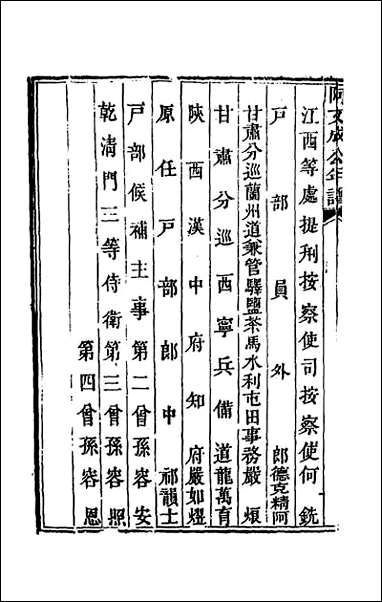 阿文成公年譜
江西等處提刑按察使司按察使何銑
戸部員外郎德克精阿
甘肅分巡蘭州道兼管驛鹽茶馬水利屯田事務嚴烺
甘肅分巡西寧兵備道龍萬育
陝西漢中府知府嚴如熤
原任戸部郎中祁韻士
戸部候補主事第二曾孫容安
乾清門三等侍衛第三曾孫容照
第四曾孫容恩